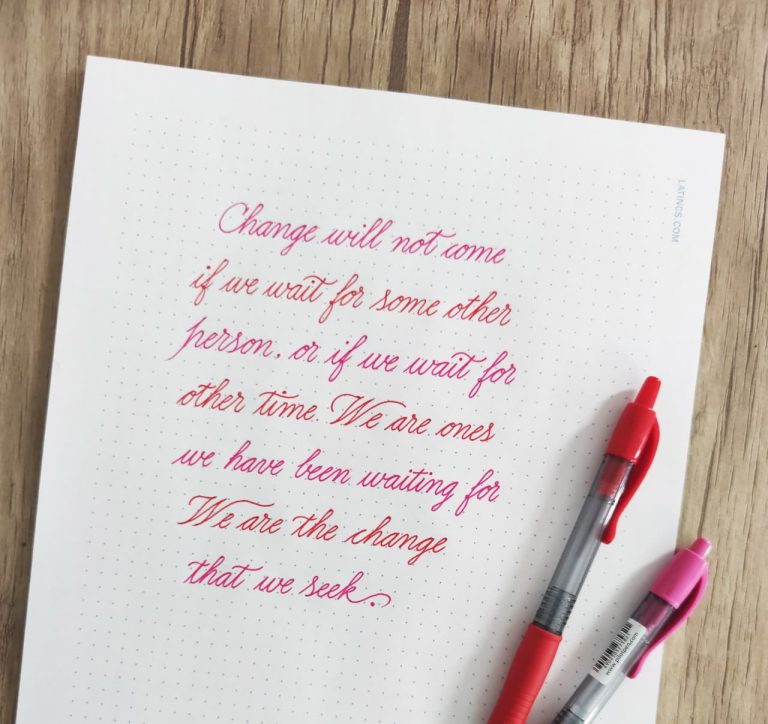 Change will not come
if we wait for some other
person. or if we wait for
other time. We are ones
we have been waiting for
We are the change
that we seek.
LATINCS.COM
www.pilotpen.com